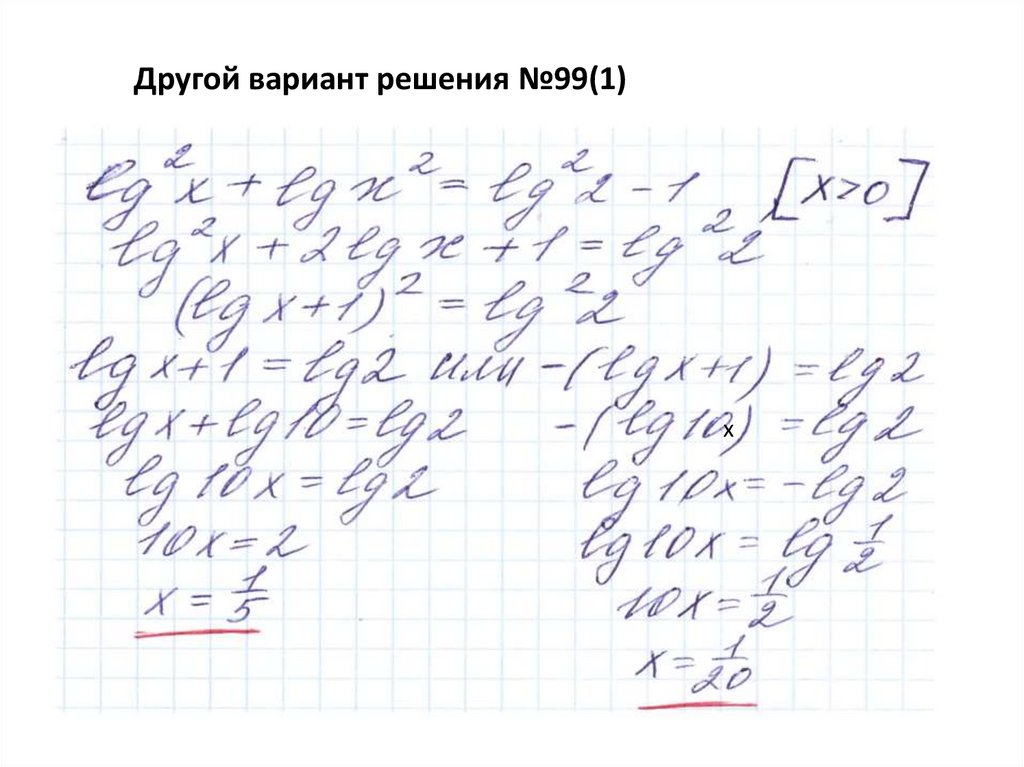 Другой вариант решения №99(1)
lg²x + lg x² = lg²2 - 1 [x>0]
lg²x + 2lg x + 1 = lg²2
(lg x+1)² = lg²2
lg x+1 = lg2 или -(lg x+1) = lg2
lg x + lg10 = lg2 -(lg10x) = lg2
lg 10x = lg2 lg10x = -lg2
10x = 2 lg10x = lg 1/2
x = 1/5 10x = 1/2
x = 1/20